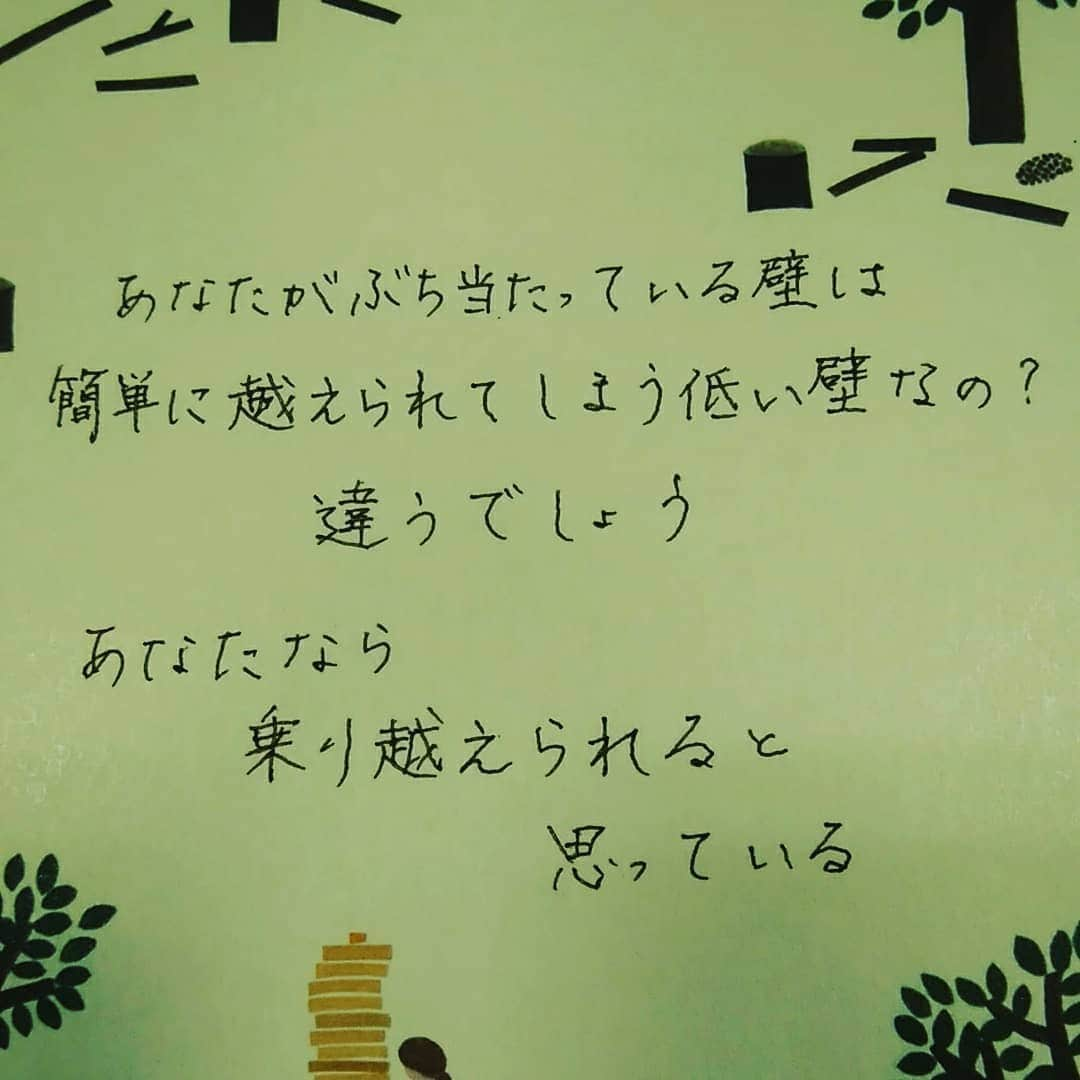 あなたがぶち当たっている壁は
簡単に越えられてしまう低い壁なの？
違うでしょう
あなたなら
乗り越えられると
思っている